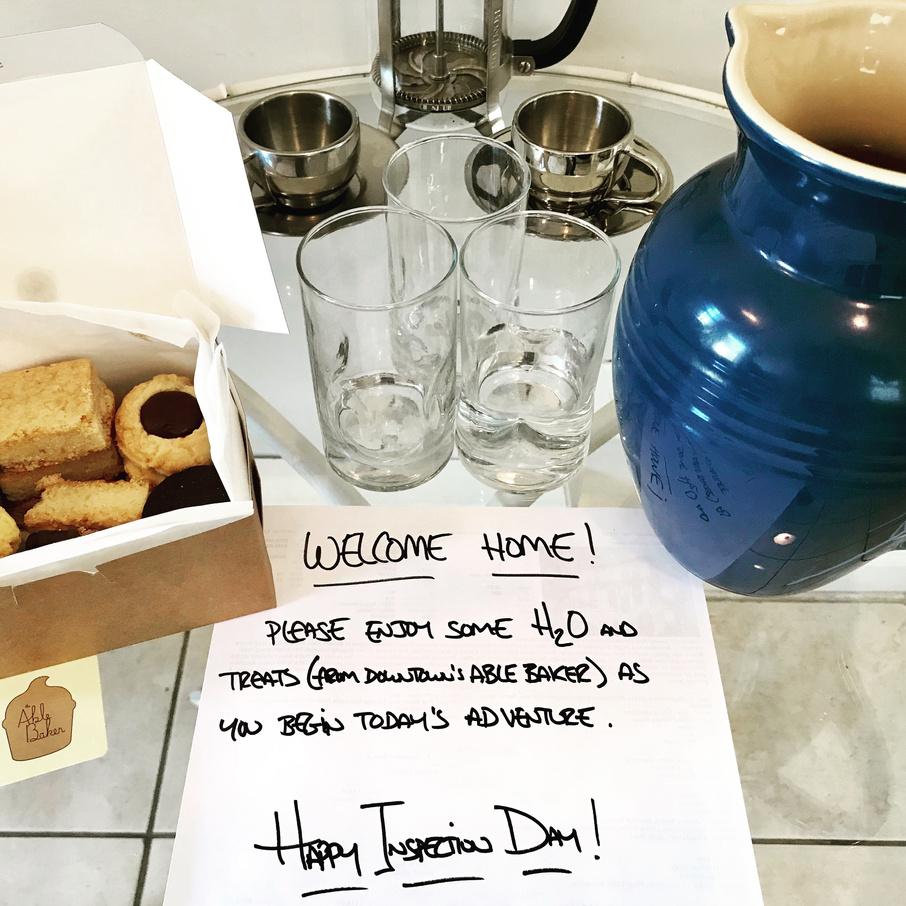 WELCOME HOME!
PLEASE ENJOY SOME H₂O AND
TREATS (FROM DOWNTOWN'S ABLE BAKER) AS
YOU BEGIN TODAY'S ADVENTURE.
HAPPY INSPECTION DAY!
the
Able
Baker